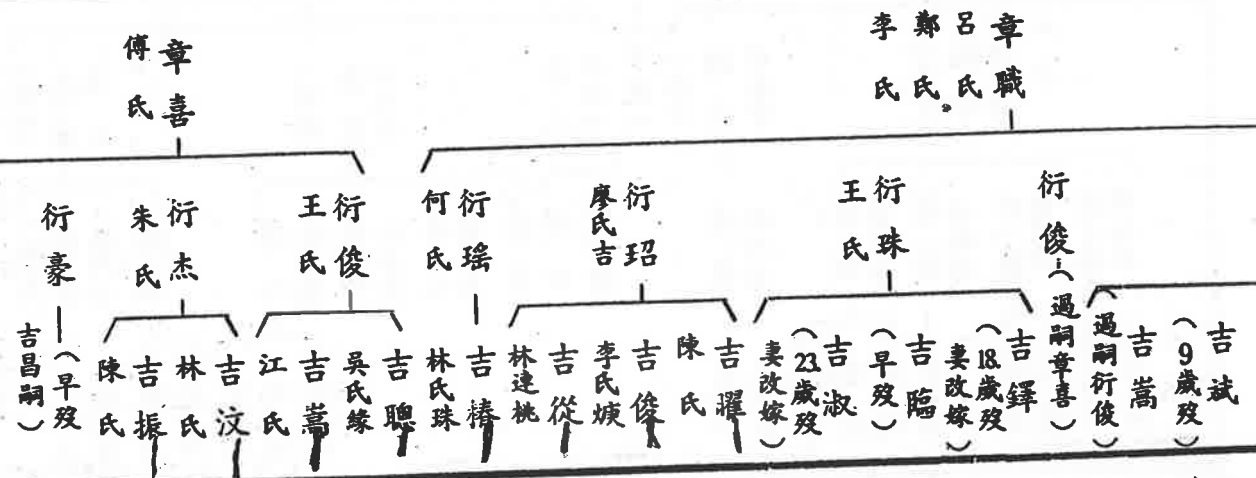 章職
呂氏
鄭氏
李氏
章喜
傅氏
衍俊(過嗣章喜)
衍珠
王氏
衍玿
廖氏吉
衍瑤
何氏
衍俊
王氏
衍杰
朱氏
衍豪
(早歿
吉昌嗣)
吉斌
(9歲歿)
吉嵩
(過嗣衍俊)
吉鐸
(18歲歿
妻改嫁)
吉臨
(早歿)
吉淑
(23歲歿
妻改嫁)
吉曜
陳氏
吉俊
李氏
吉從
林連桃
吉椿
林氏珠
吉聰
吳氏緣
吉嵩
江氏
吉汶
林氏
吉振
陳氏